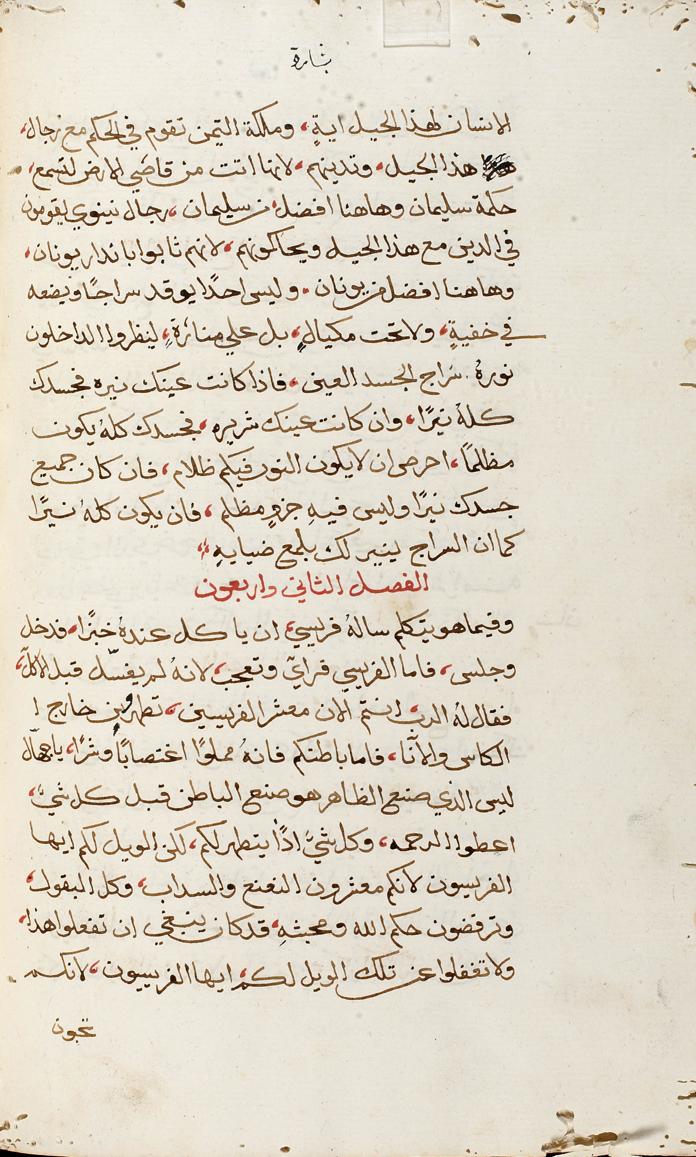 بشارة
الانسان لهذا الجيل اية، وملكة التيمن تقوم في الحكم مع رجال،
هذا الجيل، وتدينهم، لانها اتت من قاصي الارض لتسمع،
حكمة سليمان وهاهنا افضل من سليمان، رجال نينوي يقومون
في الدين مع هذا الجيل ويحاكمونهم، لانهم تابوا باندار يونان،
وهاهنا افضل من يونان. وليس احدًا يوقد سراجًا ويضعه
في خفيةٍ، ولا تحت مكيالٍ، بل علي منارةٍ، لينظروا الداخلون
نورهُ. سراج الجسد العين، فاذا كانت عينك نيره فجسدك
كلهُ نيرًا، وان كانت عينك شريره، فجسدك كلهُ يكون
مظلمًا، احرص ان لا يكون النور فيكم ظلام، فان كان جميع
جسدك نيرًا وليس فيهِ جزوٍ مظلم، فان يكون كلهُ نيرًا
كما ان السراج ينير لك بلمع ضيايهِ،
الفصل الثاني واربعون
وفيما هو يتكلم سالهُ فريسي، ان ياكل عندهُ خبزًا، فدخل
وجلس، فاما الفريسي فراي وتعجب، لانهُ لم يغسّل قبل الاكل،
فقال لهُ الرب، انتم الان معشر الفريسين، تطهرون خارج ا
الكاس والانا، فاما باطنكم فانهُ مملوًا اغتصابًا وشرًا، ياجهّال
ليس الذي صنع الظاهر هو صنع الباطن قبل كل شيءٍ،
اعطوا الرحمه، وكل شيءٍ اذًا يتطهر لكم، لكن الويل لكم ايها
الفريسيون لانكم معشرون النعنع والسداب، وكل البقول،
وترفضون حكم الله ومحبتهِ، قد كان ينبغي ان تفعلوا هذا،
ولا تغفلوا عن تلك الويل لكم، ايها الفريسيون، لانكم
تحبون